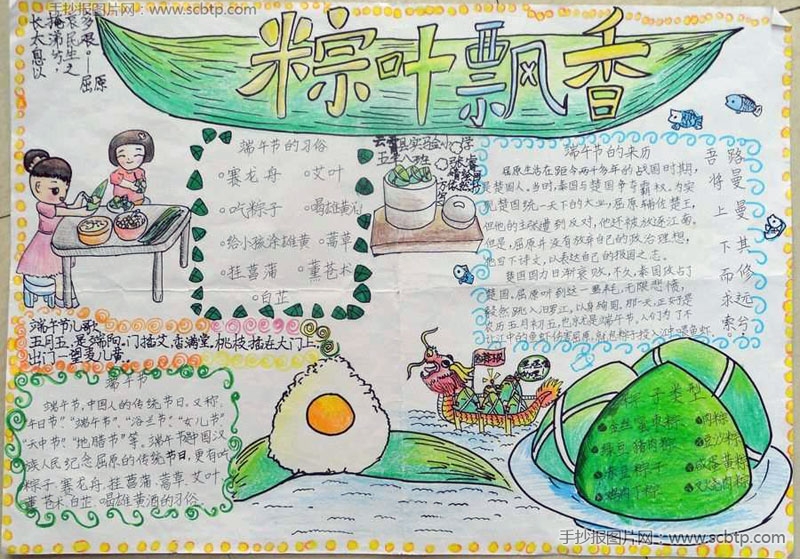 手抄报图片网:www.scbtp.com
长太息以
掩涕兮,
哀民生之
多艰。
——屈原
粽叶飘香
端午节的习俗
赛龙舟 艾叶
吃粽子 喝雄黄酒
给小孩涂雄黄 菖草
挂菖蒲 薰苍术
白芷
五年八班
端午节的来历
屈原生活在距今两千多年的战国时期,
是楚国人。当时,秦国与楚国争夺霸权。为实
现楚国统一天下的大业,屈原辅佐楚王,
但他的主张遭到反对,他还被放逐江南。
但是,屈原并没有放弃自己的政治理想,
他写下诗文,以表达自己的报国之志。
楚国国力日渐衰败,不久,秦国攻占了
楚国,屈原听到这一噩耗,无限悲愤,
毅然跳入汨罗江,以身殉国。那一天正好是
农历五月初五,也就是端午节,人们为了不
让江中的鱼虾伤害屈原,就把粽子投入
路曼曼其修远兮
吾将上下而求索
端午节儿歌
五月五,是端阳。门插艾,香满堂,桃枝插在大门上,
出门一望麦儿黄。
端午节
端午节,中国人的传统节日。又称
"午日节""端午节"、"浴兰节""女儿节"
"天中节""地腊节"等。端午节是中国汉
族人民纪念屈原的传统节日,更有吃
粽子,赛龙舟,挂菖蒲,蒿草,艾叶,
薰苍术,白芷,喝雄黄酒的习俗。
粽子类型
肉粽
绿豆鸭肉粽 豆沙粽
赤豆粽子 咸蛋黄粽
鸡肉丁粽 叉烧肉粽
手抄报图片网:www.scbtp.com